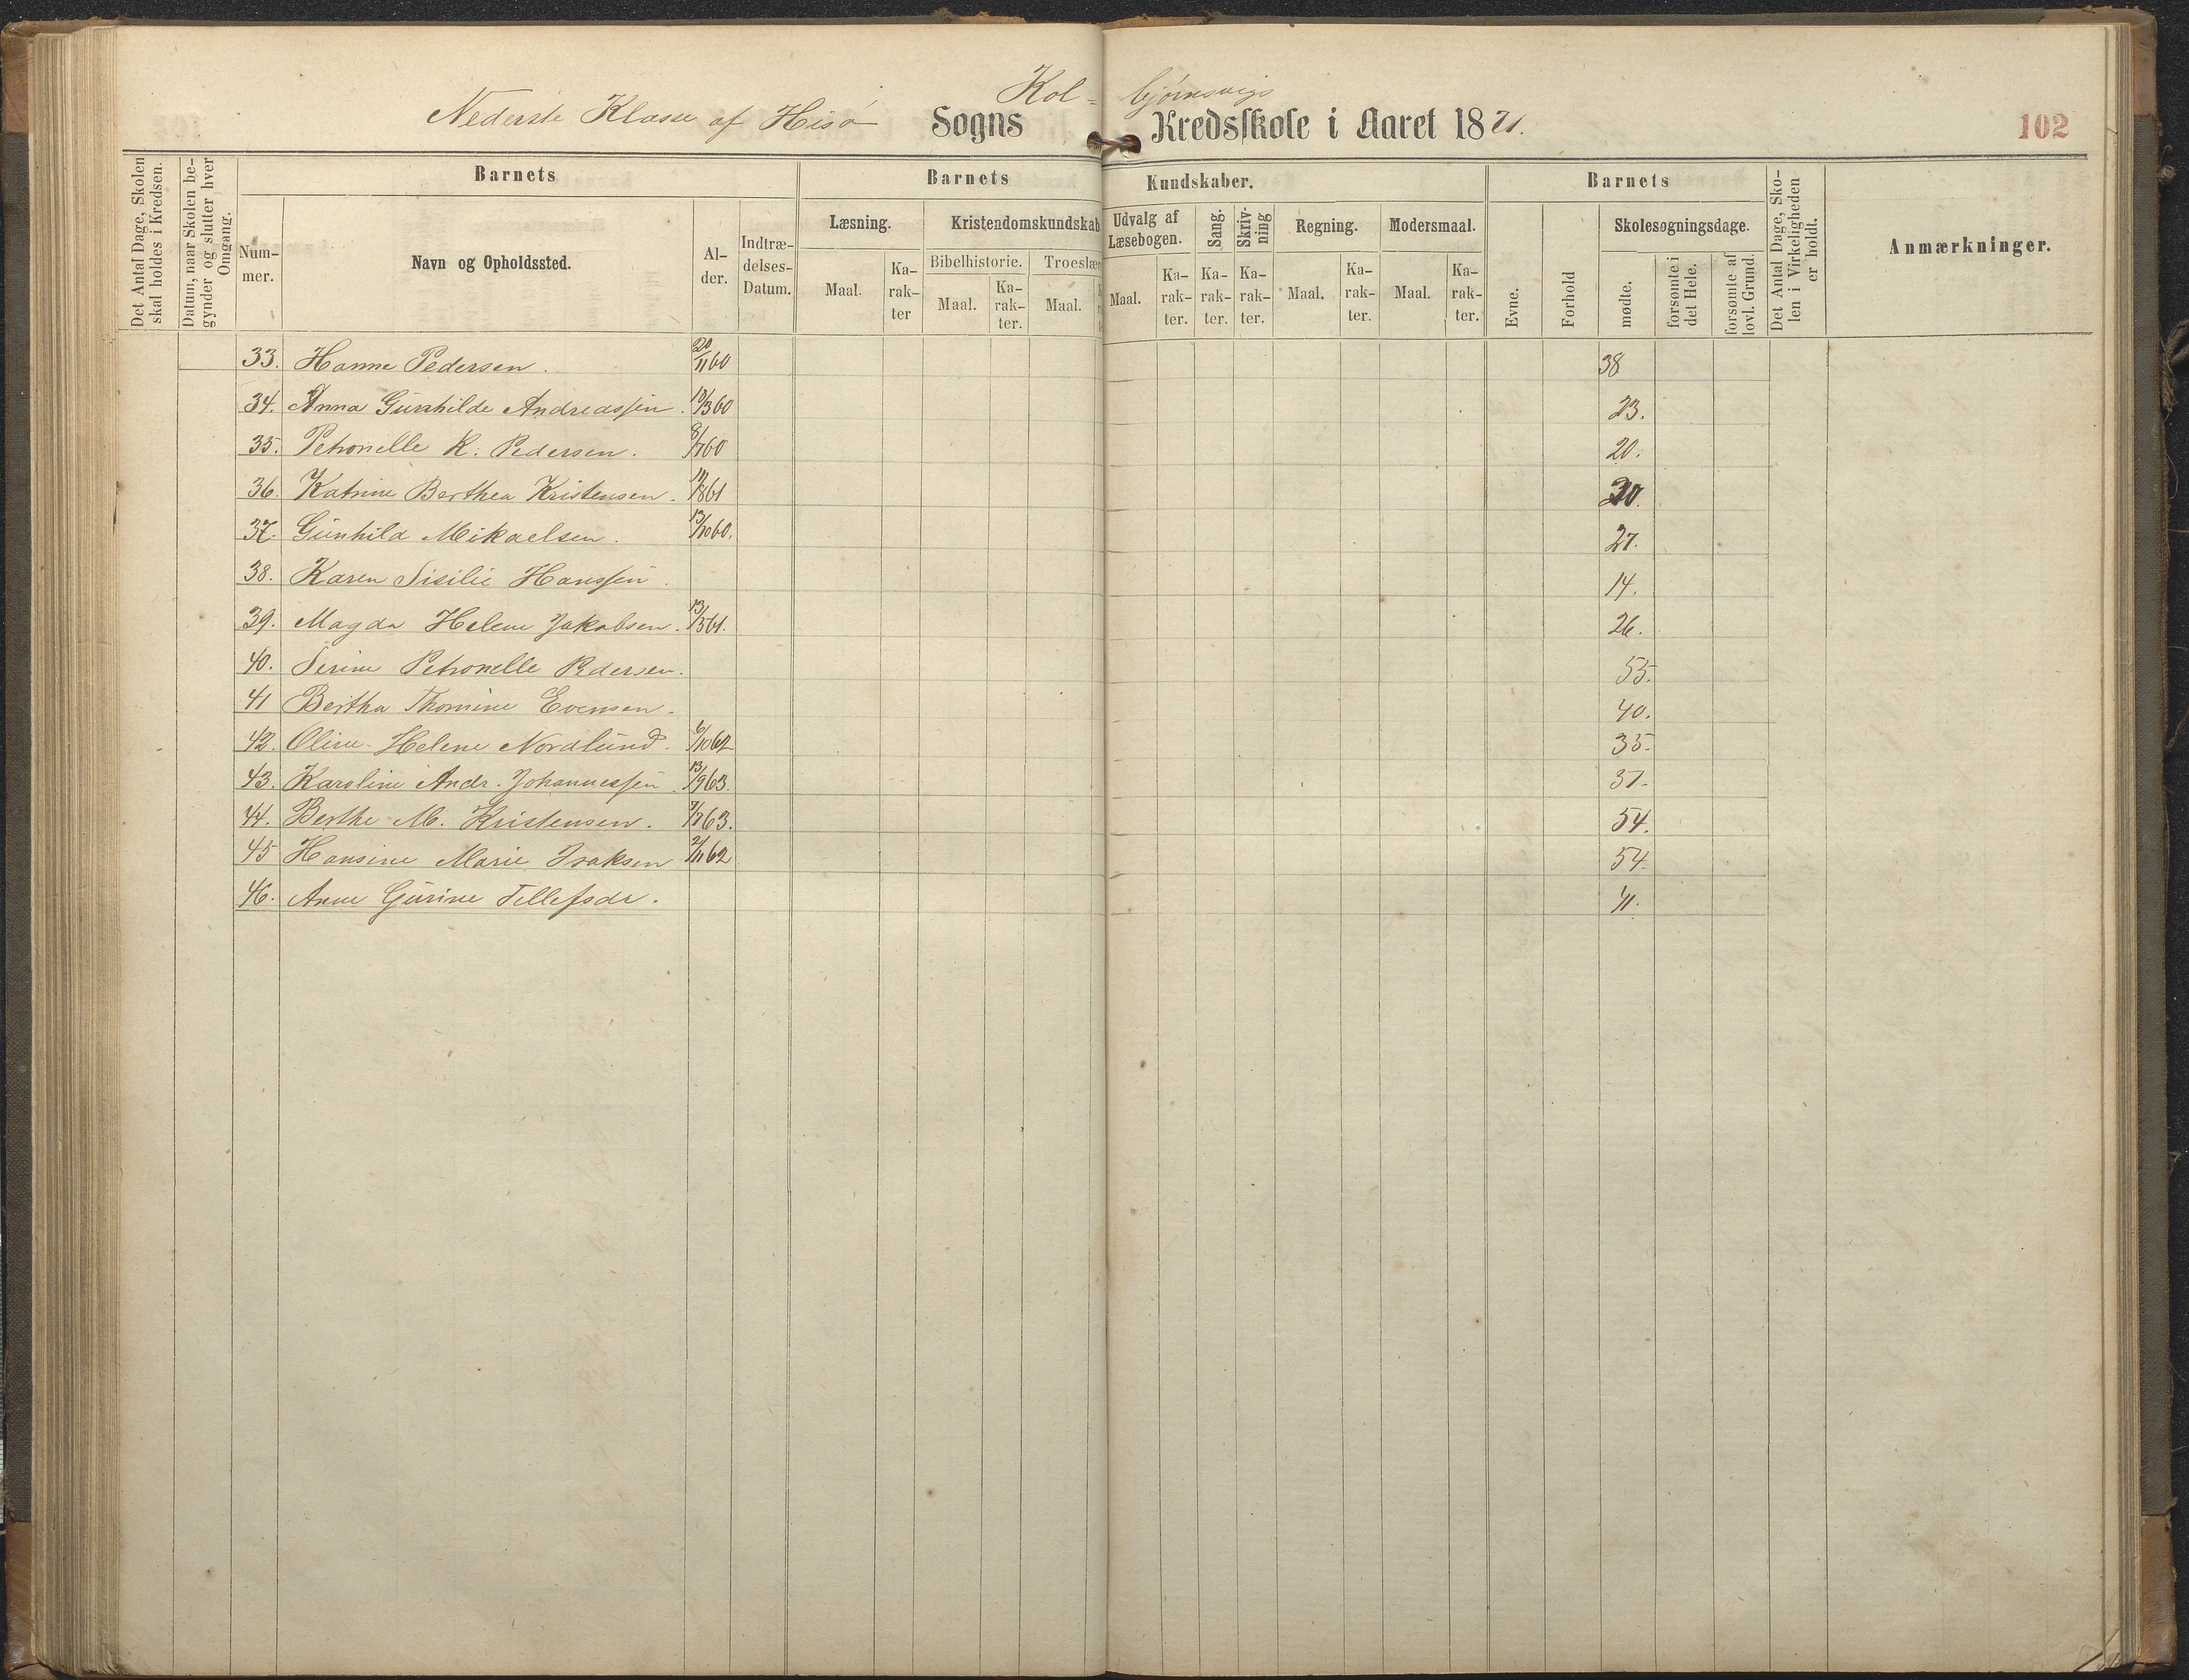 Kol- bjørnsvigs
Nederste Klasse af Hisø Sogns Kredsskole i Aaret 1871. 102
Det Antal Dage, Skolen skal holdes i Kredsen.
Datum, naar Skolen be-gynder og slutter hver Omgang.
Barnets
Num-mer.
Navn og Opholdssted.
Al-der.
Indtræ-delses-Datum.
Barnets Kundskaber.
Læsning.
Maal.
Ka-rak-ter
Kristendomskundskab
Bibelhistorie.
Maal.
Ka-rak-ter.
Troeslær
Maal.
Udvalg af Læsebogen.
Maal.
Ka-rak-ter.
Sang.
Ka-rak-ter.
Skriv-ning
Ka-rak-ter.
Regning.
Maal.
Ka-rak-ter.
Modersmaal.
Maal.
Ka-rak-ter.
Barnets
Evne.
Forhold
Skolesøgningsdage.
mødte.
forsømte i det Hele.
forsømte af lovl. Grund.
Det Antal Dage, Sko-len i Virkeligheden er holdt.
Anmærkninger.
33. Hanne Pedersen. 20/11 60 38
34. Anna Gunhilde Andreassen. 10/3 60 23.
35. Petronelle K. Pedersen. 8/7 60 20.
36. Katrine Berthea Kristensen. 61 30.
37. Gunhild Mikaelsen. 13/10 60. 27.
38. Karen Sisilie Hanssen. 14.
39. Magda Helene Jakobsen. 13/5 61. 26.
40. Serine Petronelle Pedersen. 55.
41 Bertha Thomine Evensen. 40.
42. Oline Helene Nordlund. 6/10 62 35.
43. Karoline Andr. Johannessen. 13/9 63. 37.
44. Berthe M. Kristensen. 7/7 63. 54.
45 Hansine Marie Isaksen 2/11 62 54.
46. Anne Gurine Tellefsdr. 41.